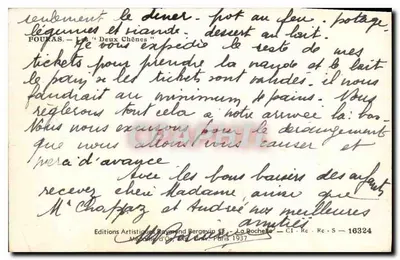 seulement le diner - pot au feu. potage.
légumes et viande. dessert au lait.
FOURAS. - Les "Deux Chênes"
Je vous expédie le reste de mes
tickets pour prendre la viande et le lait
le pain, si les tickets sont valides. il nous
faudrait au minimum 4 pains. Nous
règlerons tout cela a notre arrivée là-bas.
Nous nous excusons pour le dérangement
que nous allons vous causer et
merci d'avance
Avec les bons baisers des enfants
recevez chère Madame ainsi que
Mr Chappaz et Andrée nos meilleures
amitiés
Editions Artistiques Raymond Bergevin - La Rochelle - Cl - Re - Re - S - 16324
Paris 1937